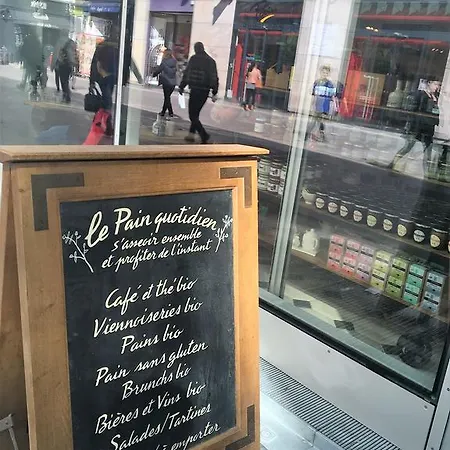 le Pain quotidien
s'asseoir ensemble
et profiter de l'instant
Café et thé bio
Viennoiseries bio
Pains bio
Pain sans gluten
Brunchs bio
Bières et Vins bio
Salades/Tartines
à emporter